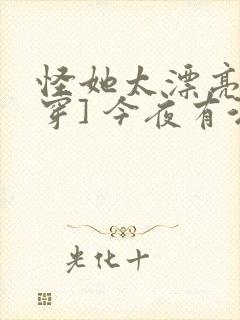 怪她太漂亮
穿] 今夜有
光化十